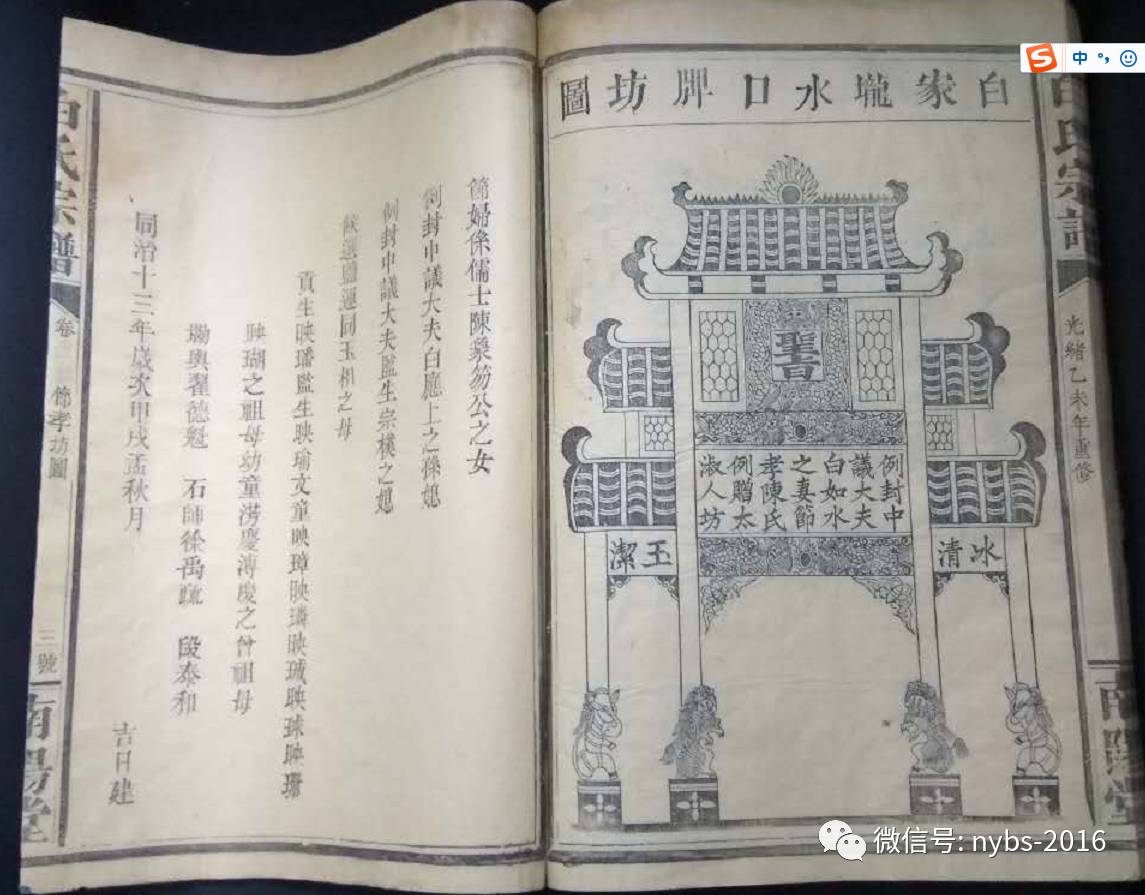 白氏宗譜
光緒乙未年重修
南陽堂
白家壠水口牌坊圖
聖旨
例封中
議大夫
白如水
之妻節
孝陳氏
例贈太
淑人坊
冰清
玉潔
節婦係儒士陳彖笏公之女
例封中議大夫白廳上之孫媳
例封中議大夫監生宗樸之媳
候選鹽運同玉相之母
貢生映璠監生映瑜文童映璋映璘映瑊映球映珊
映瑚之祖母幼童澇慶溥慶之曾祖母
翟德魁 石師徐禹疏 段泰和
同治十三年歲次甲戌孟秋月 吉日建
白氏宗譜
卷
節孝坊圖
三號
南陽堂
中
微信号: nybs-2016